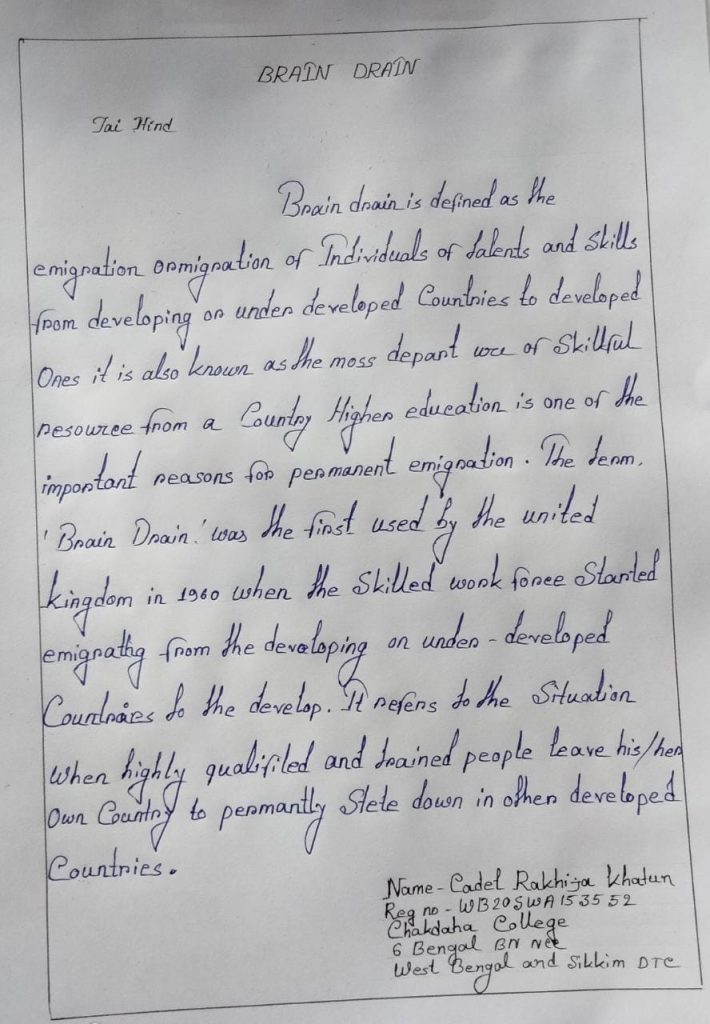 BRAIN DRAIN
Jai Hind
Brain drain is defined as the
emigration ormigration of Individuals of talents and Skills
from developing or under developed Countries to developed
Ones it is also known as the moss depart ure of Skillful
resource from a Country Higher education is one of the
important reasons for permanent emigration. The term,
'Brain Drain.' was the first used by the united
kingdom in 1960 when the Skilled work force Started
emigrathg from the developing or under-developed
Countries to the develop. It refers to the Situation
when highly qualifiled and trained people leave his/her
Own Country to permantly Stete down in other developed
Countries.
Name - Cadet Rakhija Khatun
Reg no - WB20SWA153552
Chakdaha College
6 Bengal BN Ncc
West Bengal and Sikkim DTC